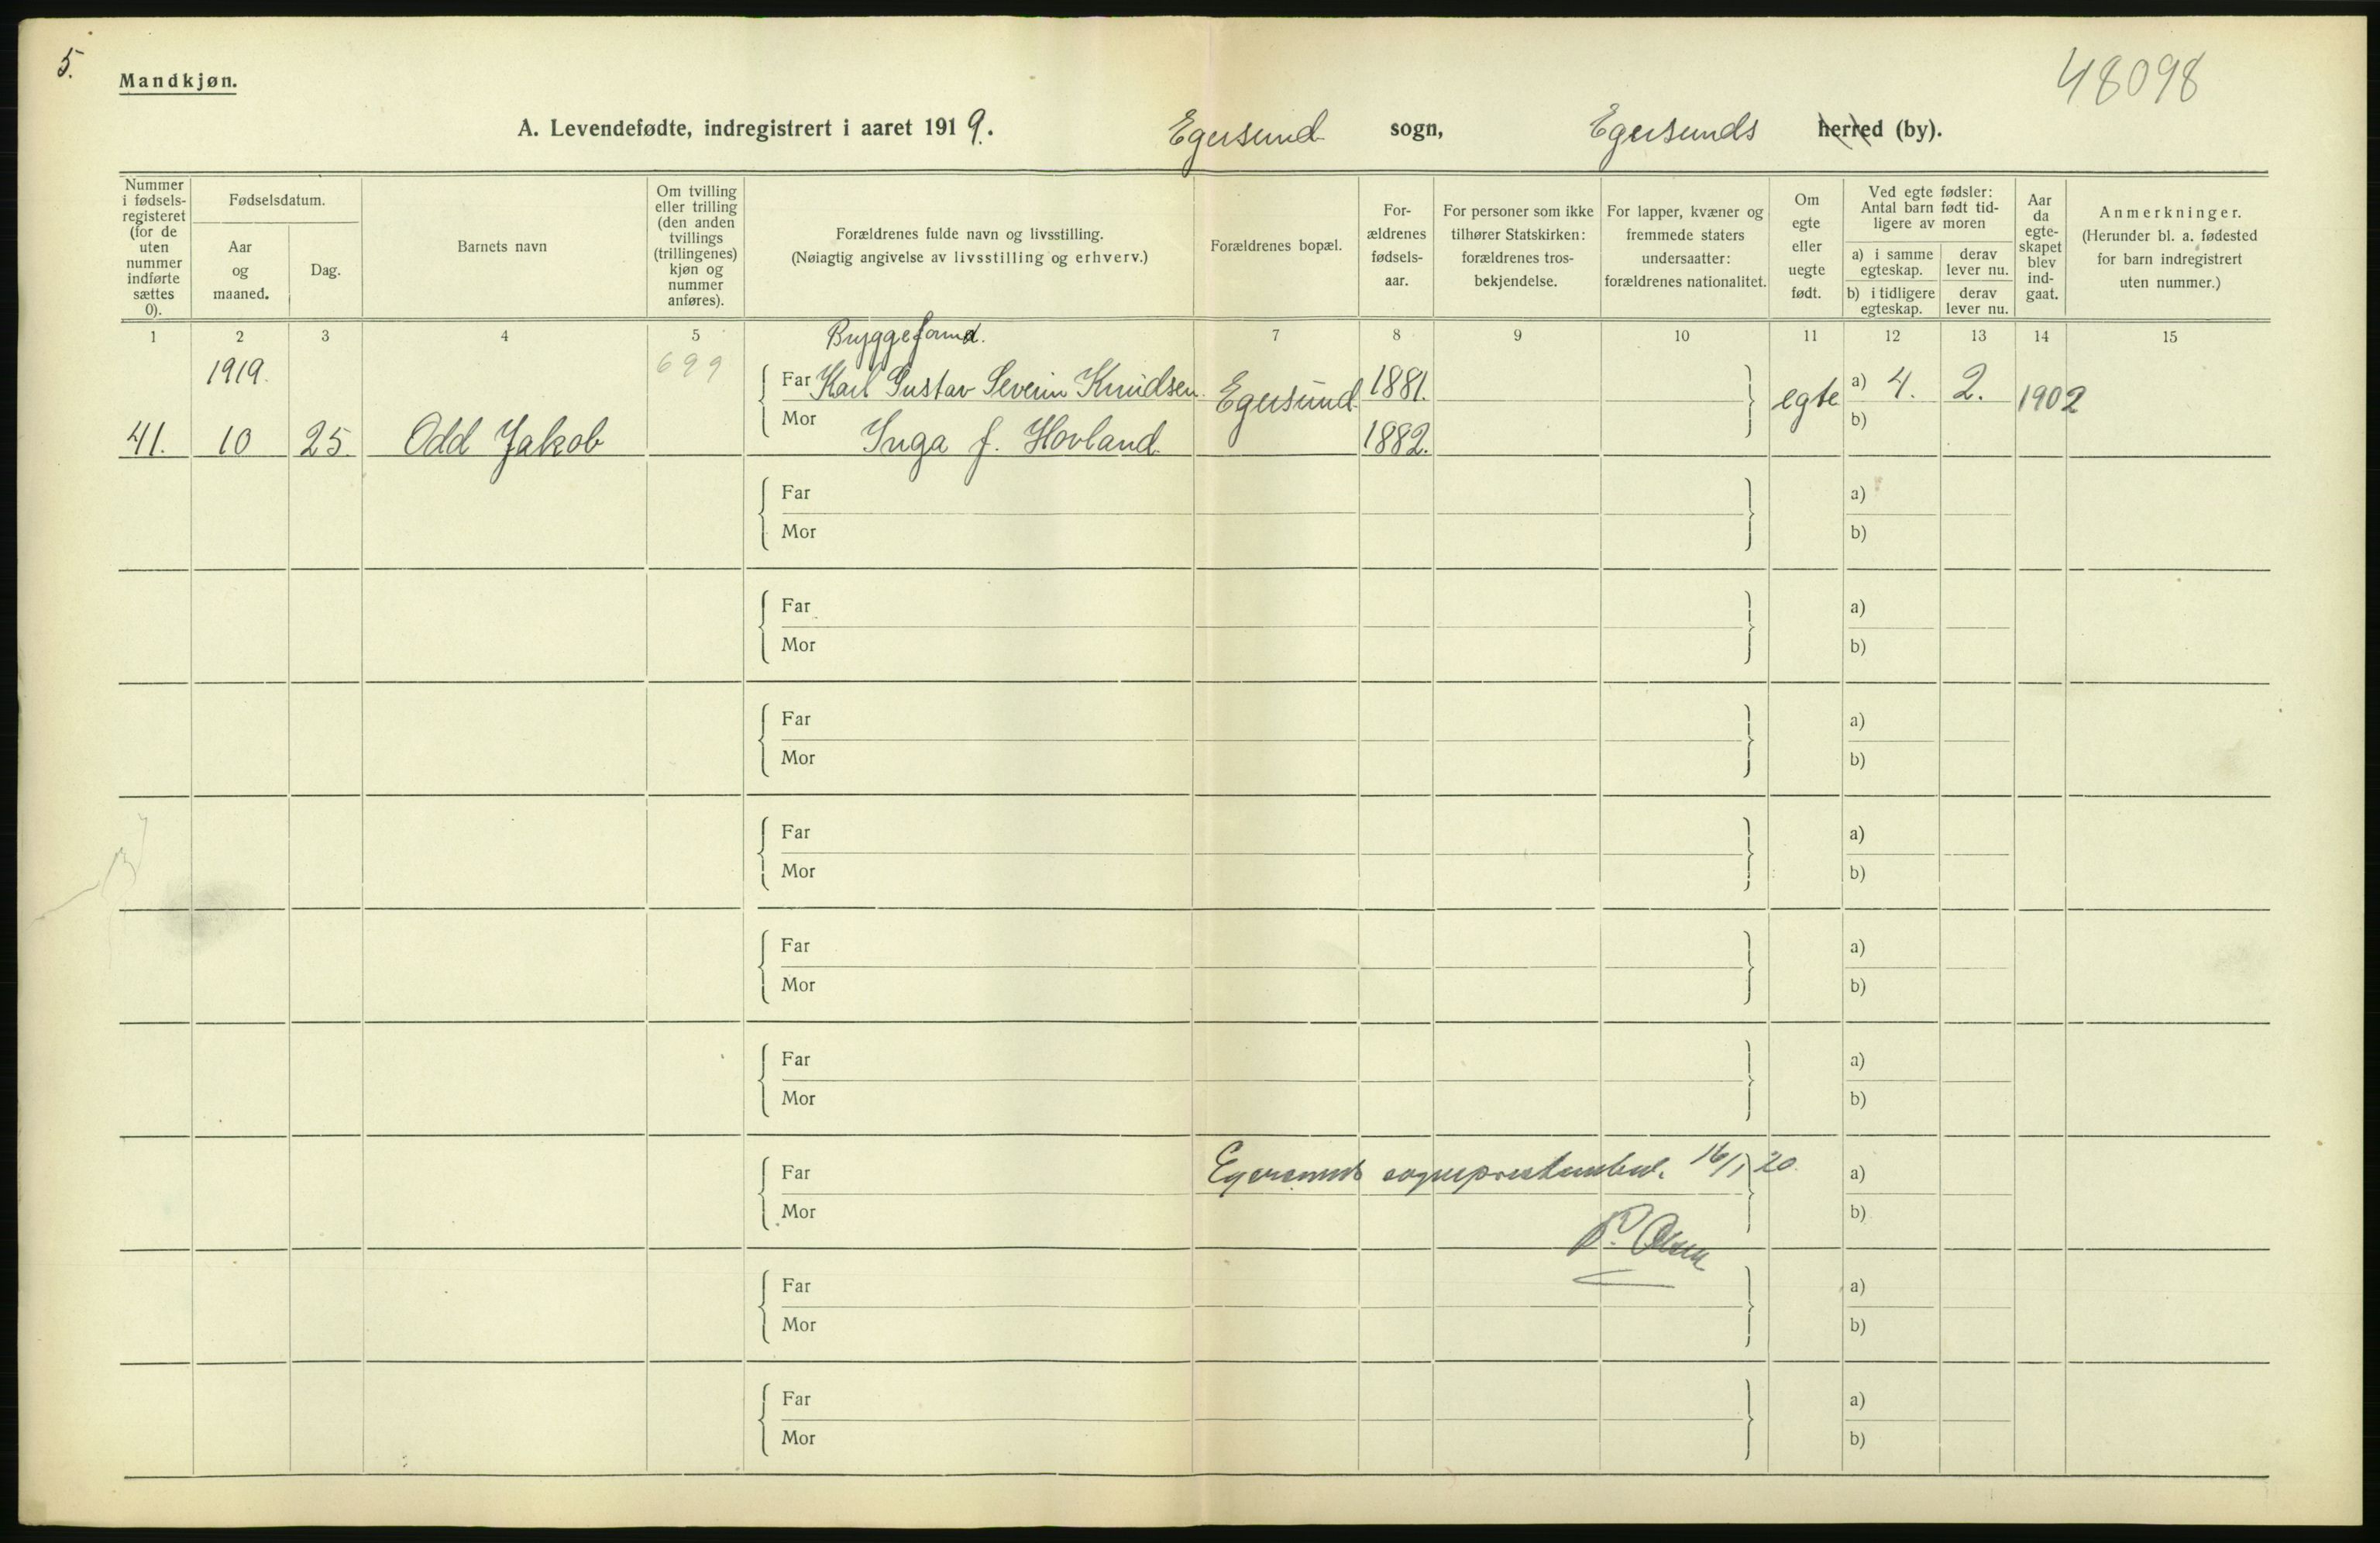 5.
Mandkjøn.
48098
A. Levendefødte, indregistrert i aaret 1919. Egersund sogn, Egersunds herred (by).
Nummer i fødsels-registeret (for de uten nummer indførte sættes 0).
Fødselsdatum.
Aar og maaned.
Dag.
Barnets navn
Om tvilling eller trilling (den anden tvillings (trillingenes) kjøn og nummer anføres).
Forældrenes fulde navn og livsstilling.
(Nøiagtig angivelse av livsstilling og erhverv.)
Forældrenes bopæl.
For-ældrenes fødsels-aar.
For personer som ikke tilhører Statskirken: forældrenes tros-bekjendelse.
For lapper, kvæner og fremmede staters undersaatter: forældrenes nationalitet.
Om egte eller uegte født.
Ved egte fødsler: Antal barn født tid-ligere av moren
a) i samme egteskap.
derav lever nu.
b) i tidligere egteskap.
derav lever nu.
Aar da egte-skapet blev ind-gaat.
Anmerkninger.
(Herunder bl. a. fødested for barn indregistrert uten nummer.)
1 2 3 4 5 7 8 9 10 11 12 13 14 15
Byggeformd.
1919. 699 Far Karl Gustav Severin Knudsen Egersund 1881. egte a) 4. 2. 1902
41. 10 25. Odd Jakob Mor Inga f. Hovland. 1882. b)
Far a)
Mor b)
Far a)
Mor b)
Far a)
Mor b)
Far a)
Mor b)
Far a)
Mor b)
Far a)
Mor b)
Far Egersunds sogneprestembed. 16/1 20. a)
Mor b)
P. Olsen
Far a)
Mor b)
Far a)
Mor b)